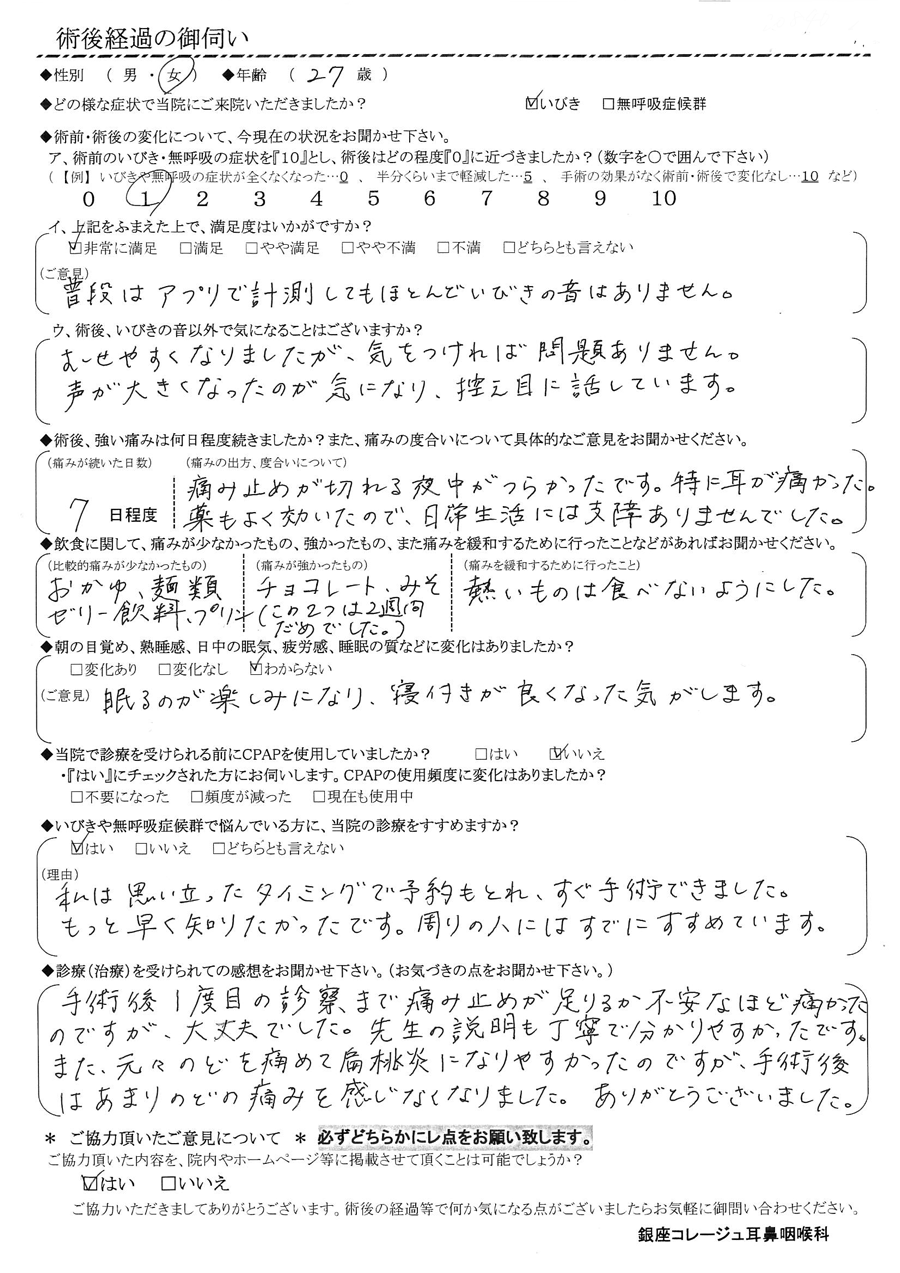 術後経過の御伺い
◆性別 （ 男 ・ 女 ） ◆年齢 （ 27 歳 ）
◆どの様な症状で当院にご来院いただきましたか？ ☑いびき □無呼吸症候群
◆術前・術後の変化について、今現在の状況をお聞かせ下さい。
ア、術前のいびき・無呼吸の症状を『10』とし、術後はどの程度『0』に近づきましたか？（数字を〇で囲んで下さい）
（ 【例】 いびきや無呼吸の症状が全くなくなった…0 、 半分くらいまで軽減した…5 、 手術の効果がなく術前・術後で変化なし…10 など）
0 1 2 3 4 5 6 7 8 9 10
イ、上記をふまえた上で、満足度はいかがですか？
☑非常に満足 □満足 □やや満足 □やや不満 □不満 □どちらとも言えない
（ご意見）
普段は アプリで計測してもほとんどいびきの音はありません。
ウ、術後、いびきの音以外で気になることはございますか？
むせやすくなりましたが、気をつければ問題ありません。
声が大きくなったのが気になり、控え目に話しています。
◆術後、強い痛みは何日程度続きましたか？また、痛みの度合いについて具体的なご意見をお聞かせください。
（痛みが続いた日数） （痛みの出方、度合いについて）
痛み止めが切れる夜中がつらかったです。特に耳が痛かった。
7 日程度 薬もよく効いたので、日常生活には支障ありませんでした。
◆飲食に関して、痛みが少なかったもの、強かったもの、また痛みを緩和するために行ったことなどがあればお聞かせください。
（比較的痛みが少なかったもの） （痛みが強かったもの） （痛みを緩和するために行ったこと）
おかゆ、麺類 チョコレート、みそ 熱いものは食べないようにした。
ゼリー飲料、プリン （この2つは2週間
だめでした。）
◆朝の目覚め、熟睡感、日中の眠気、疲労感、睡眠の質などに変化はありましたか？
□変化あり □変化なし ☑わからない
（ご意見） 眠るのが楽しみになり、寝付きが良くなった気がします。
◆当院で診療を受けられる前にCPAPを使用していましたか？ □はい ☑いいえ
・『はい』にチェックされた方にお伺いします。CPAPの使用頻度に変化はありましたか？
□不要になった □頻度が減った □現在も使用中
◆いびきや無呼吸症候群で悩んでいる方に、当院の診療をすすめますか？
☑はい □いいえ □どちらとも言えない
（理由）
私は思い立ったタイミングで予約もとれ、すぐ手術できました。
もっと早く知りたかったです。周りの人にはすでにすすめています。
◆診療（治療）を受けられての感想をお聞かせ下さい。（お気づきの点をお聞かせ下さい。）
手術後1度目の診察まで痛み止めが足りるか不安なほど痛かった
のですが、大丈夫でした。先生の説明も丁寧で分かりやすかったです。
また、元々のどを痛めて扁桃炎になりやすかったのですが、手術後
はあまりのどの痛みを感じなくなりました。 ありがとうございました。
＊ ご協力頂いたご意見について ＊ 必ずどちらかにレ点をお願い致します。
ご協力頂いた内容を、院内やホームページ等に掲載させて頂くことは可能でしょうか？
☑はい □いいえ
ご協力いただきましてありがとうございます。術後の経過等で何か気になる点がございましたらお気軽に御問い合わせください。
銀座コレージュ耳鼻咽喉科